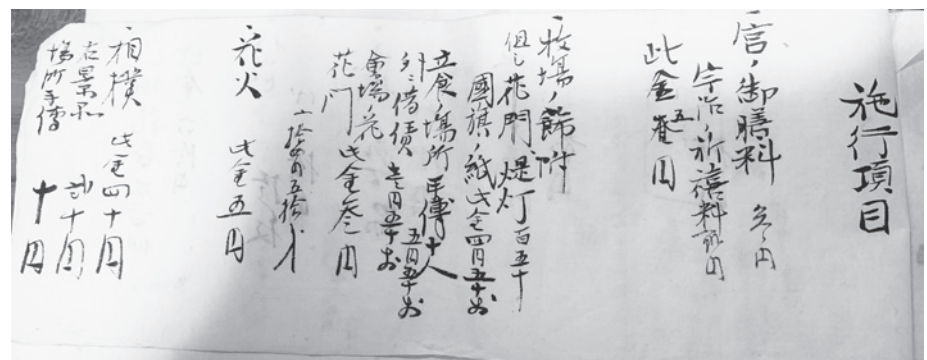 施行項目
一、宮ノ御膳料 参円
宇治ノ祈祷料 弐円
此金五円
一、牧場ノ飾附
但し花門、提灯百五十
國旗ノ紙 此金四円五十お
立食ノ場所 手傳十人
外ニ借債 壱円五十お 五円五十お
會場ノ花
花門 此金参円
〆拾四円五拾
一、花火 此金五円
一、相撲 此金四十円
右景品 弐十円
場所手傳 十円